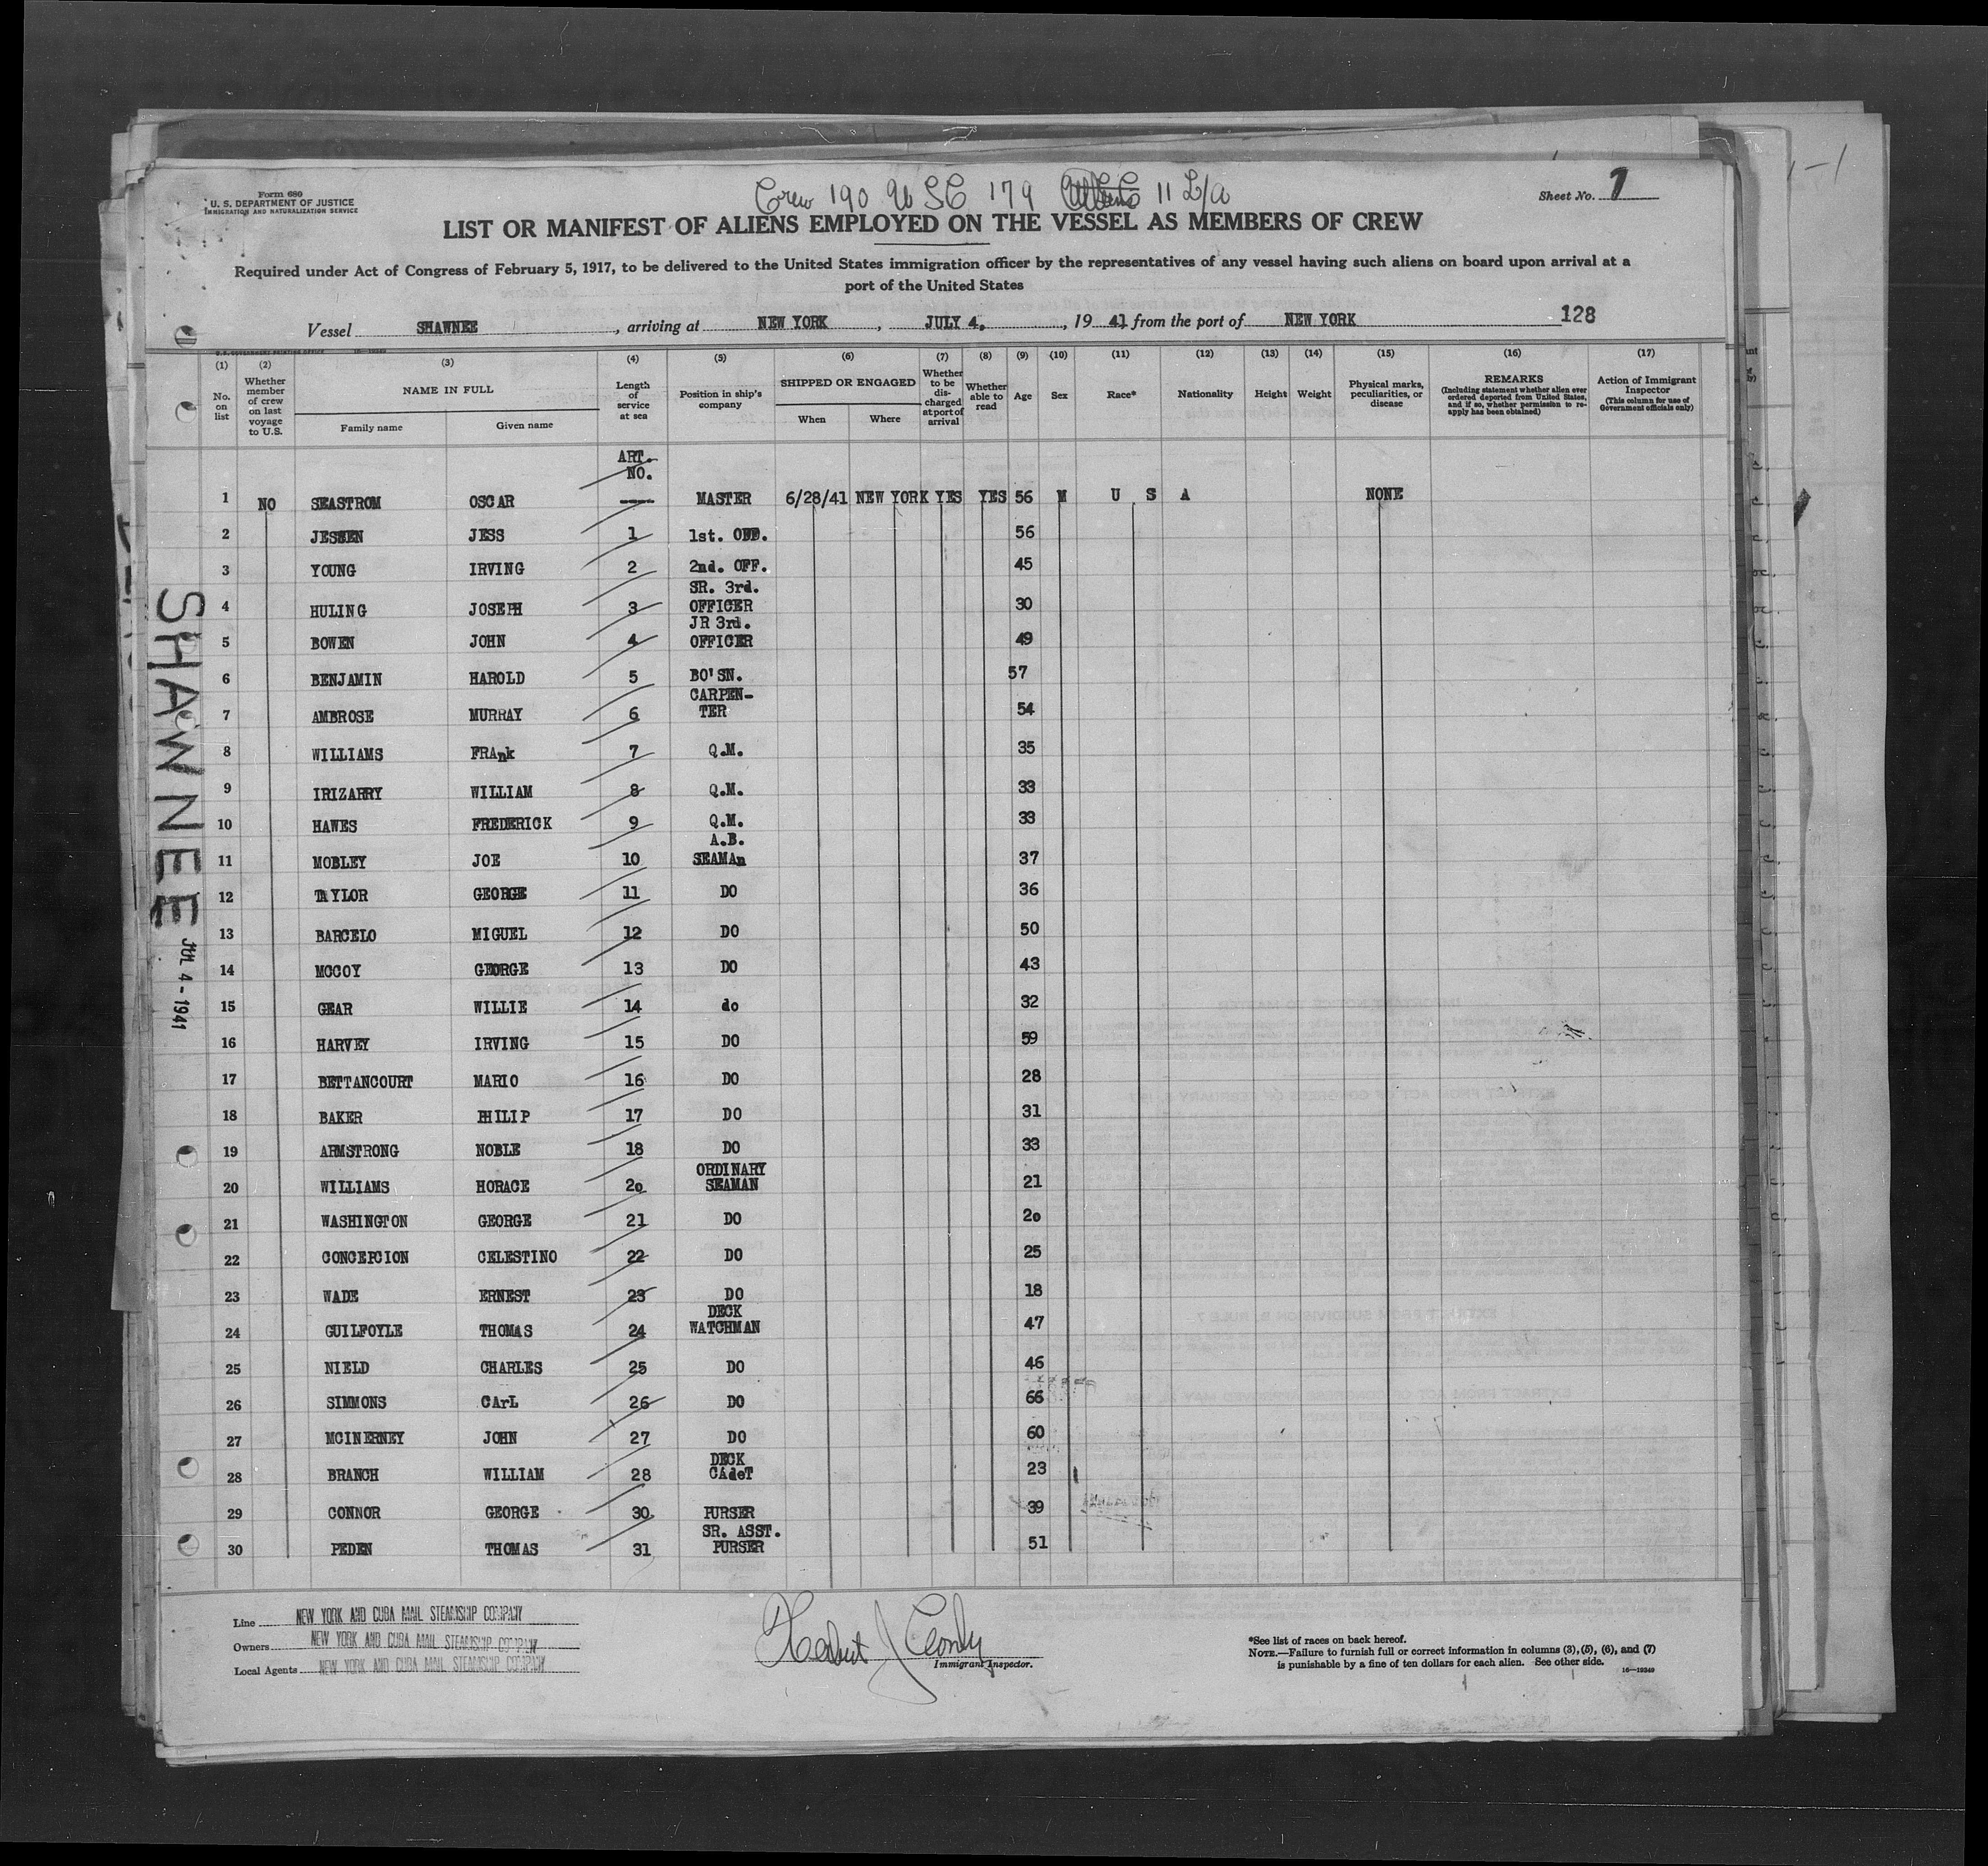 Form 680
U. S. DEPARTMENT OF JUSTICE
IMMIGRATION AND NATURALIZATION SERVICE
Crew 190 U S C 179 11 L/A
Sheet No. 1
LIST OR MANIFEST OF ALIENS EMPLOYED ON THE VESSEL AS MEMBERS OF CREW
Required under Act of Congress of February 5, 1917, to be delivered to the United States immigration officer by the representatives of any vessel having such aliens on board upon arrival at a
port of the United States
Vessel SHAWNEE, arriving at NEW YORK, JULY 4., 19 41 from the port of NEW YORK 128
U.S. GOVERNMENT PRINTING OFFICE 16—19349
(1) (2) (3) (4) (5) (6) (7) (8) (9) (10) (11) (12) (13) (14) (15) (16) (17)
No. on list
Whether member of crew on last voyage to U.S.
NAME IN FULL
Family name
Given name
Length of service at sea
Position in ship's company
SHIPPED OR ENGAGED
When
Where
Whether to be discharged at port of arrival
Whether able to read
Age
Sex
Race*
Nationality
Height
Weight
Physical marks, peculiarities, or disease
REMARKS
(Including statement whether alien ever ordered deported from United States, and if so, whether permission to re-apply has been obtained)
Action of Immigrant Inspector
(This column for use of Government officials only)
ART.
NO.
1 NO SEASTROM OSCAR — MASTER 6/28/41 NEW YORK YES YES 56 M U S A NONE
2 JESSEN JESS 1 1st. OFF. 56
3 YOUNG IRVING 2 2nd. OFF. 45
SR. 3rd.
4 HULING JOSEPH 3 OFFICER 30
JR 3rd.
5 BOWEN JOHN 4 OFFICER 49
6 BENJAMIN HAROLD 5 BO'SN. 57
CARPEN-
7 AMBROSE MURRAY 6 TER 54
8 WILLIAMS FRAnk 7 Q.M. 35
9 IRIZARRY WILLIAM 8 Q.M. 33
10 HAWES FREDERICK 9 Q.M. 33
A.B.
11 MOBLEY JOE 10 SEAMAn 37
12 TAYLOR GEORGE 11 DO 36
13 BARCELO MIGUEL 12 DO 50
14 MCCOY GEORGE 13 DO 43
15 GEAR WILLIE 14 do 32
16 HARVEY IRVING 15 DO 59
17 BETTANCOURT MARIO 16 DO 28
18 BAKER PHILIP 17 DO 31
19 ARMSTRONG NOBLE 18 DO 33
ORDINARY
20 WILLIAMS HORACE 2o SEAMAN 21
21 WASHINGTON GEORGE 21 DO 2o
22 CONCEPCION CELESTINO 22 DO 25
23 WADE ERNEST 23 DO 18
DECK
24 GUILFOYLE THOMAS 24 WATCHMAN 47
25 NIELD CHARLES 25 DO 46
26 SIMMONS CArL 26 DO 66
27 MCINERNEY JOHN 27 DO 60
DECK
28 BRANCH WILLIAM 28 CAdeT 23
29 CONNOR GEORGE 30 PURSER 39
SR. ASST.
30 PEDEN THOMAS 31 PURSER 51
SHAWNEE
JUL 4 - 1941
Line NEW YORK AND CUBA MAIL STEAMSHIP COMPANY
Owners NEW YORK AND CUBA MAIL STEAMSHIP COMPANY
Local Agents NEW YORK AND CUBA MAIL STEAMSHIP COMPANY
Herbert J
Immigrant Inspector.
*See list of races on back hereof.
NOTE.—Failure to furnish full or correct information in columns (3), (5), (6), and (7)
is punishable by a fine of ten dollars for each alien. See other side.
16—19349